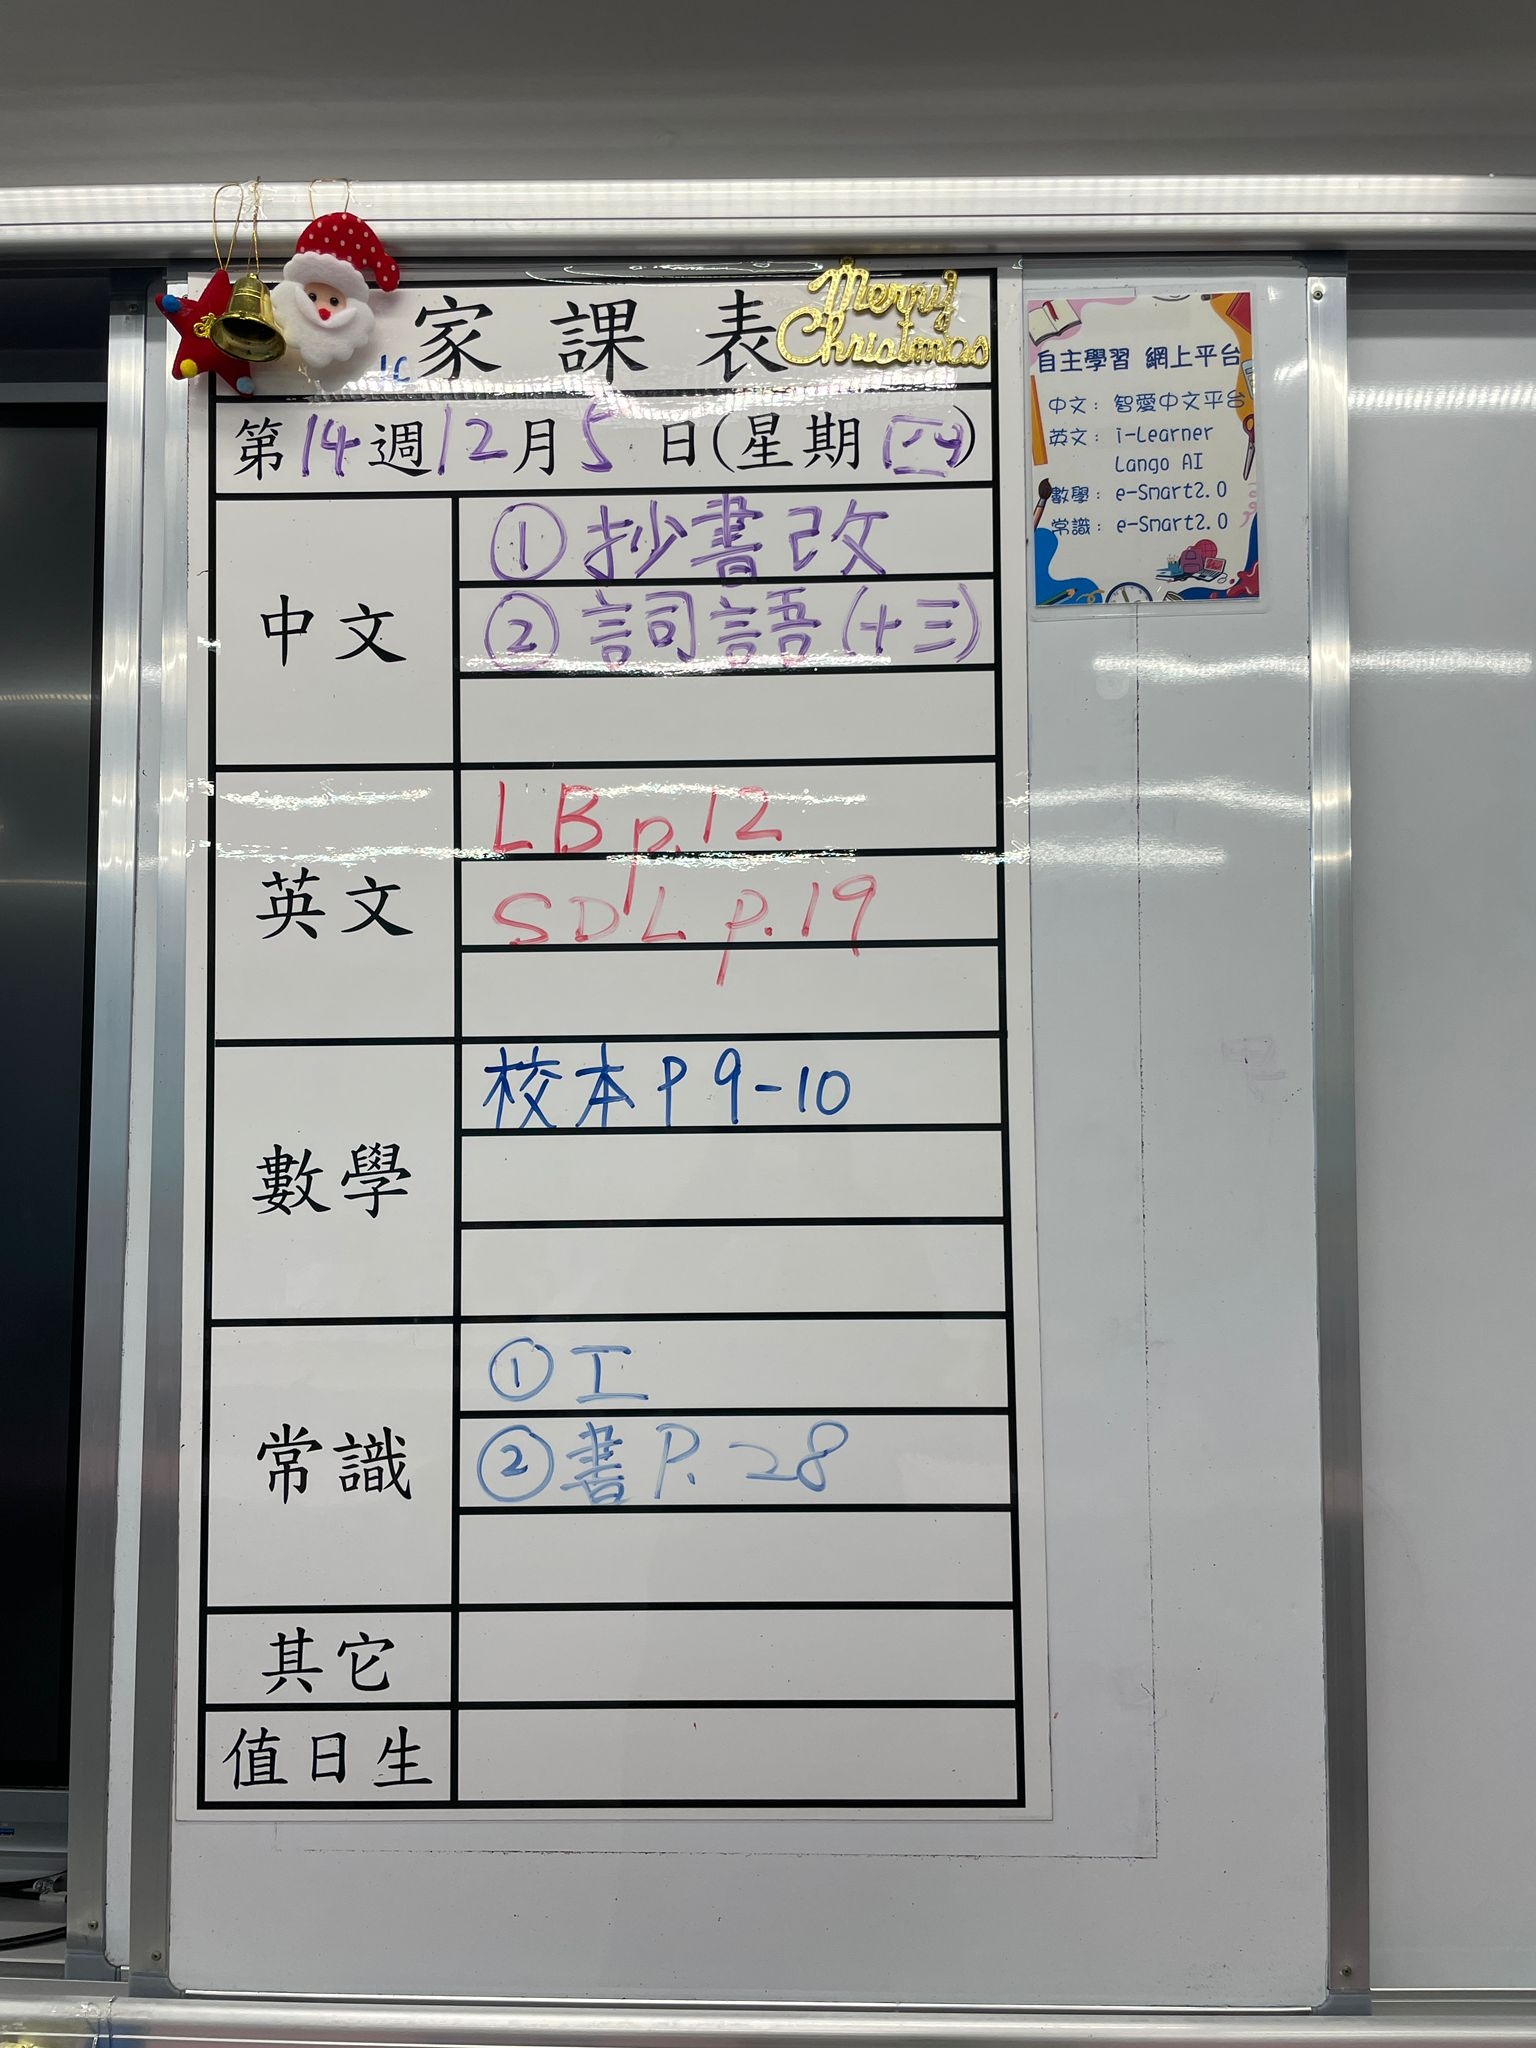 家課表
Merry
Christmas
1C
第14週12月5日(星期四)
中文
①抄書改
②詞語(十三)
英文
LB p.12
SDL p.19
數學
校本P9-10
常識
①工
②書P.28
其它
值日生
自主學習 網上平台
中文: 智愛中文平台
英文: i-Learner
Lango AI
數學: e-Smart2.0
常識: e-Smart2.0